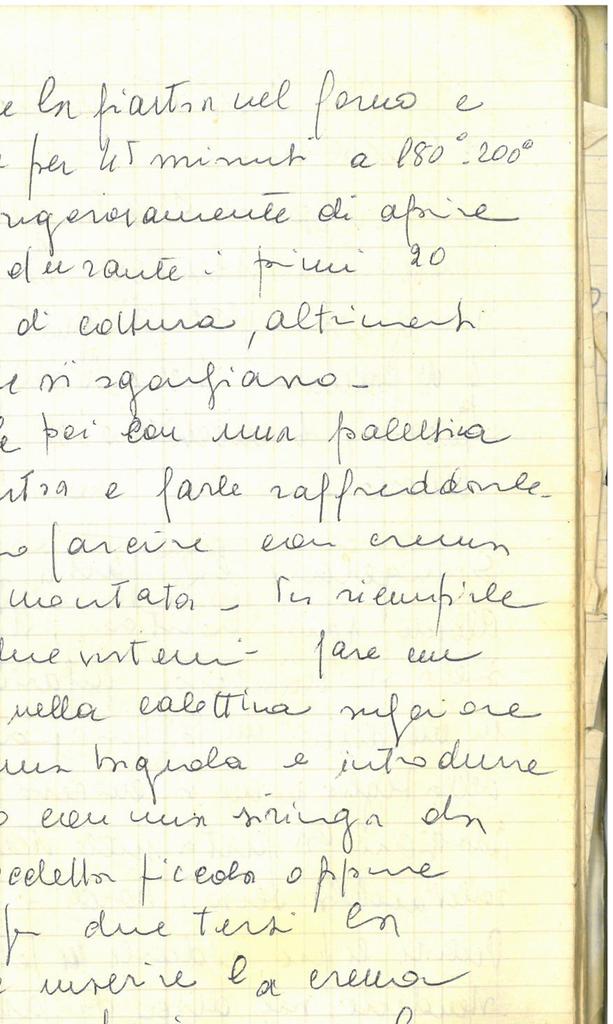 e la piastra nel forno e
per 45 minuti a 180°-200°
rigorosamente di aprire
durante i primi 20
di cottura, altrimenti
e si sgonfiano -
poi con una palettina
stra e farle raffreddarle.
no farcire con crema
montata - Per riempirle
due sistemi - fare un
nella calottina superiore
una bignola e introdurre
o con una siringa da
piccola oppure
per due terzi la
e inserire la crema